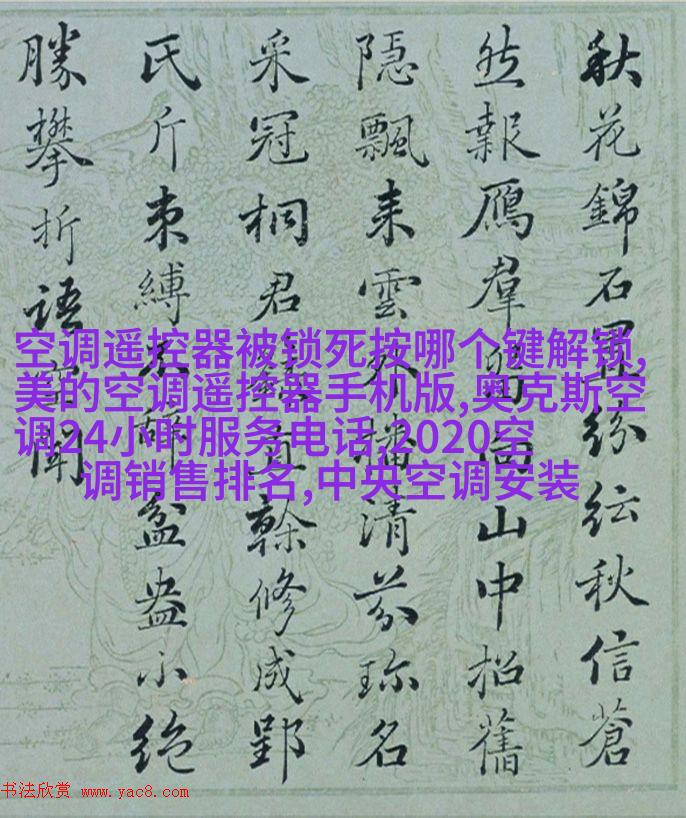 秋花錦石紛紜秋信蒼
然報鴈羣山中招舊
隱飄來雲外播清芬珎名
采冠桐君直榦修成郢
氏斤束縛辭盆盎小絶
勝攀折語聞
空调遥控器被锁死按哪个键解锁,
美的空调遥控器手机版,奥克斯空
调24小时服务电话,2020空
调销售排名,中央空调安装
书法欣赏 www.yac8.com